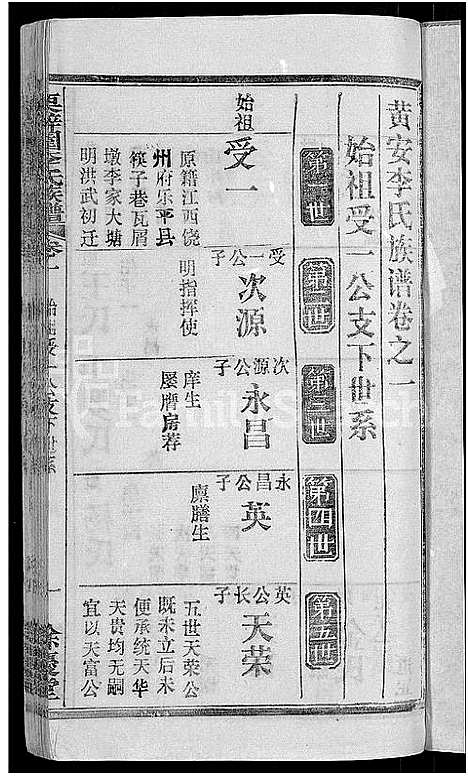 黄安李氏族谱卷之一
始祖受一公支下世系
第一世
始祖
受一
原籍江西饶
州府乐平县
筷子巷瓦屑
墩李家大塘
明洪武初迁
第二世
受一公子
次源
明指挥使
第三世
次源公子
永昌
庠生
屡膺房荐
第四世
永昌公子
英
廪膳生
第五世
英公长子
天荣
五世天荣公
既未立后未
便承统天华
天贵均无嗣
宜以天富公
李氏族谱 卷一 始祖受一公支下世系 一 余庆堂